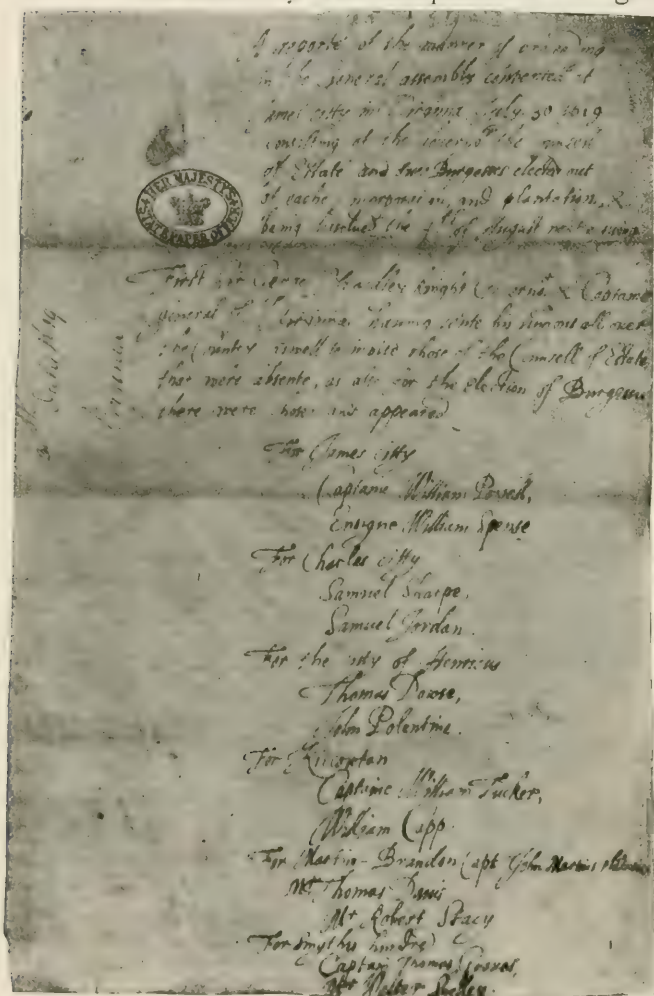 A reporte of the manner of proceeding
in the General assembly convented at
James citty in Virginia, July 30 1619
consisting of the Governor the
of Estate and two Burgesses elected out
of eache incorporation, and plantation, &
being dissolved the 4th of August next
First Sir George Yeardley Knight Governor & Captaine
general of Virginia having sente his sumons all over
the Country aswell to invite those of the Counsell of Estate,
that were absente, as also for the election of Burgesses
there were chosen and appeared
For James citty
Captaine William Powell,
Ensigne William Spense
For Charles citty
Samuel Sharpe,
Samuel Jordan.
For the citty of Henricus
Thomas Dowse,
John Polentine.
For Kiccowtan
Captaine William Tucker,
William Capp.
For Martin-Brandon Capt John Martins
Mr Thomas Davis
Mr Robert Stacy
For Smythes hundred
Captain Thomas Graves,
Mr Walter Shelley.
HER MAJESTY'S
STATE PAPER OFFICE